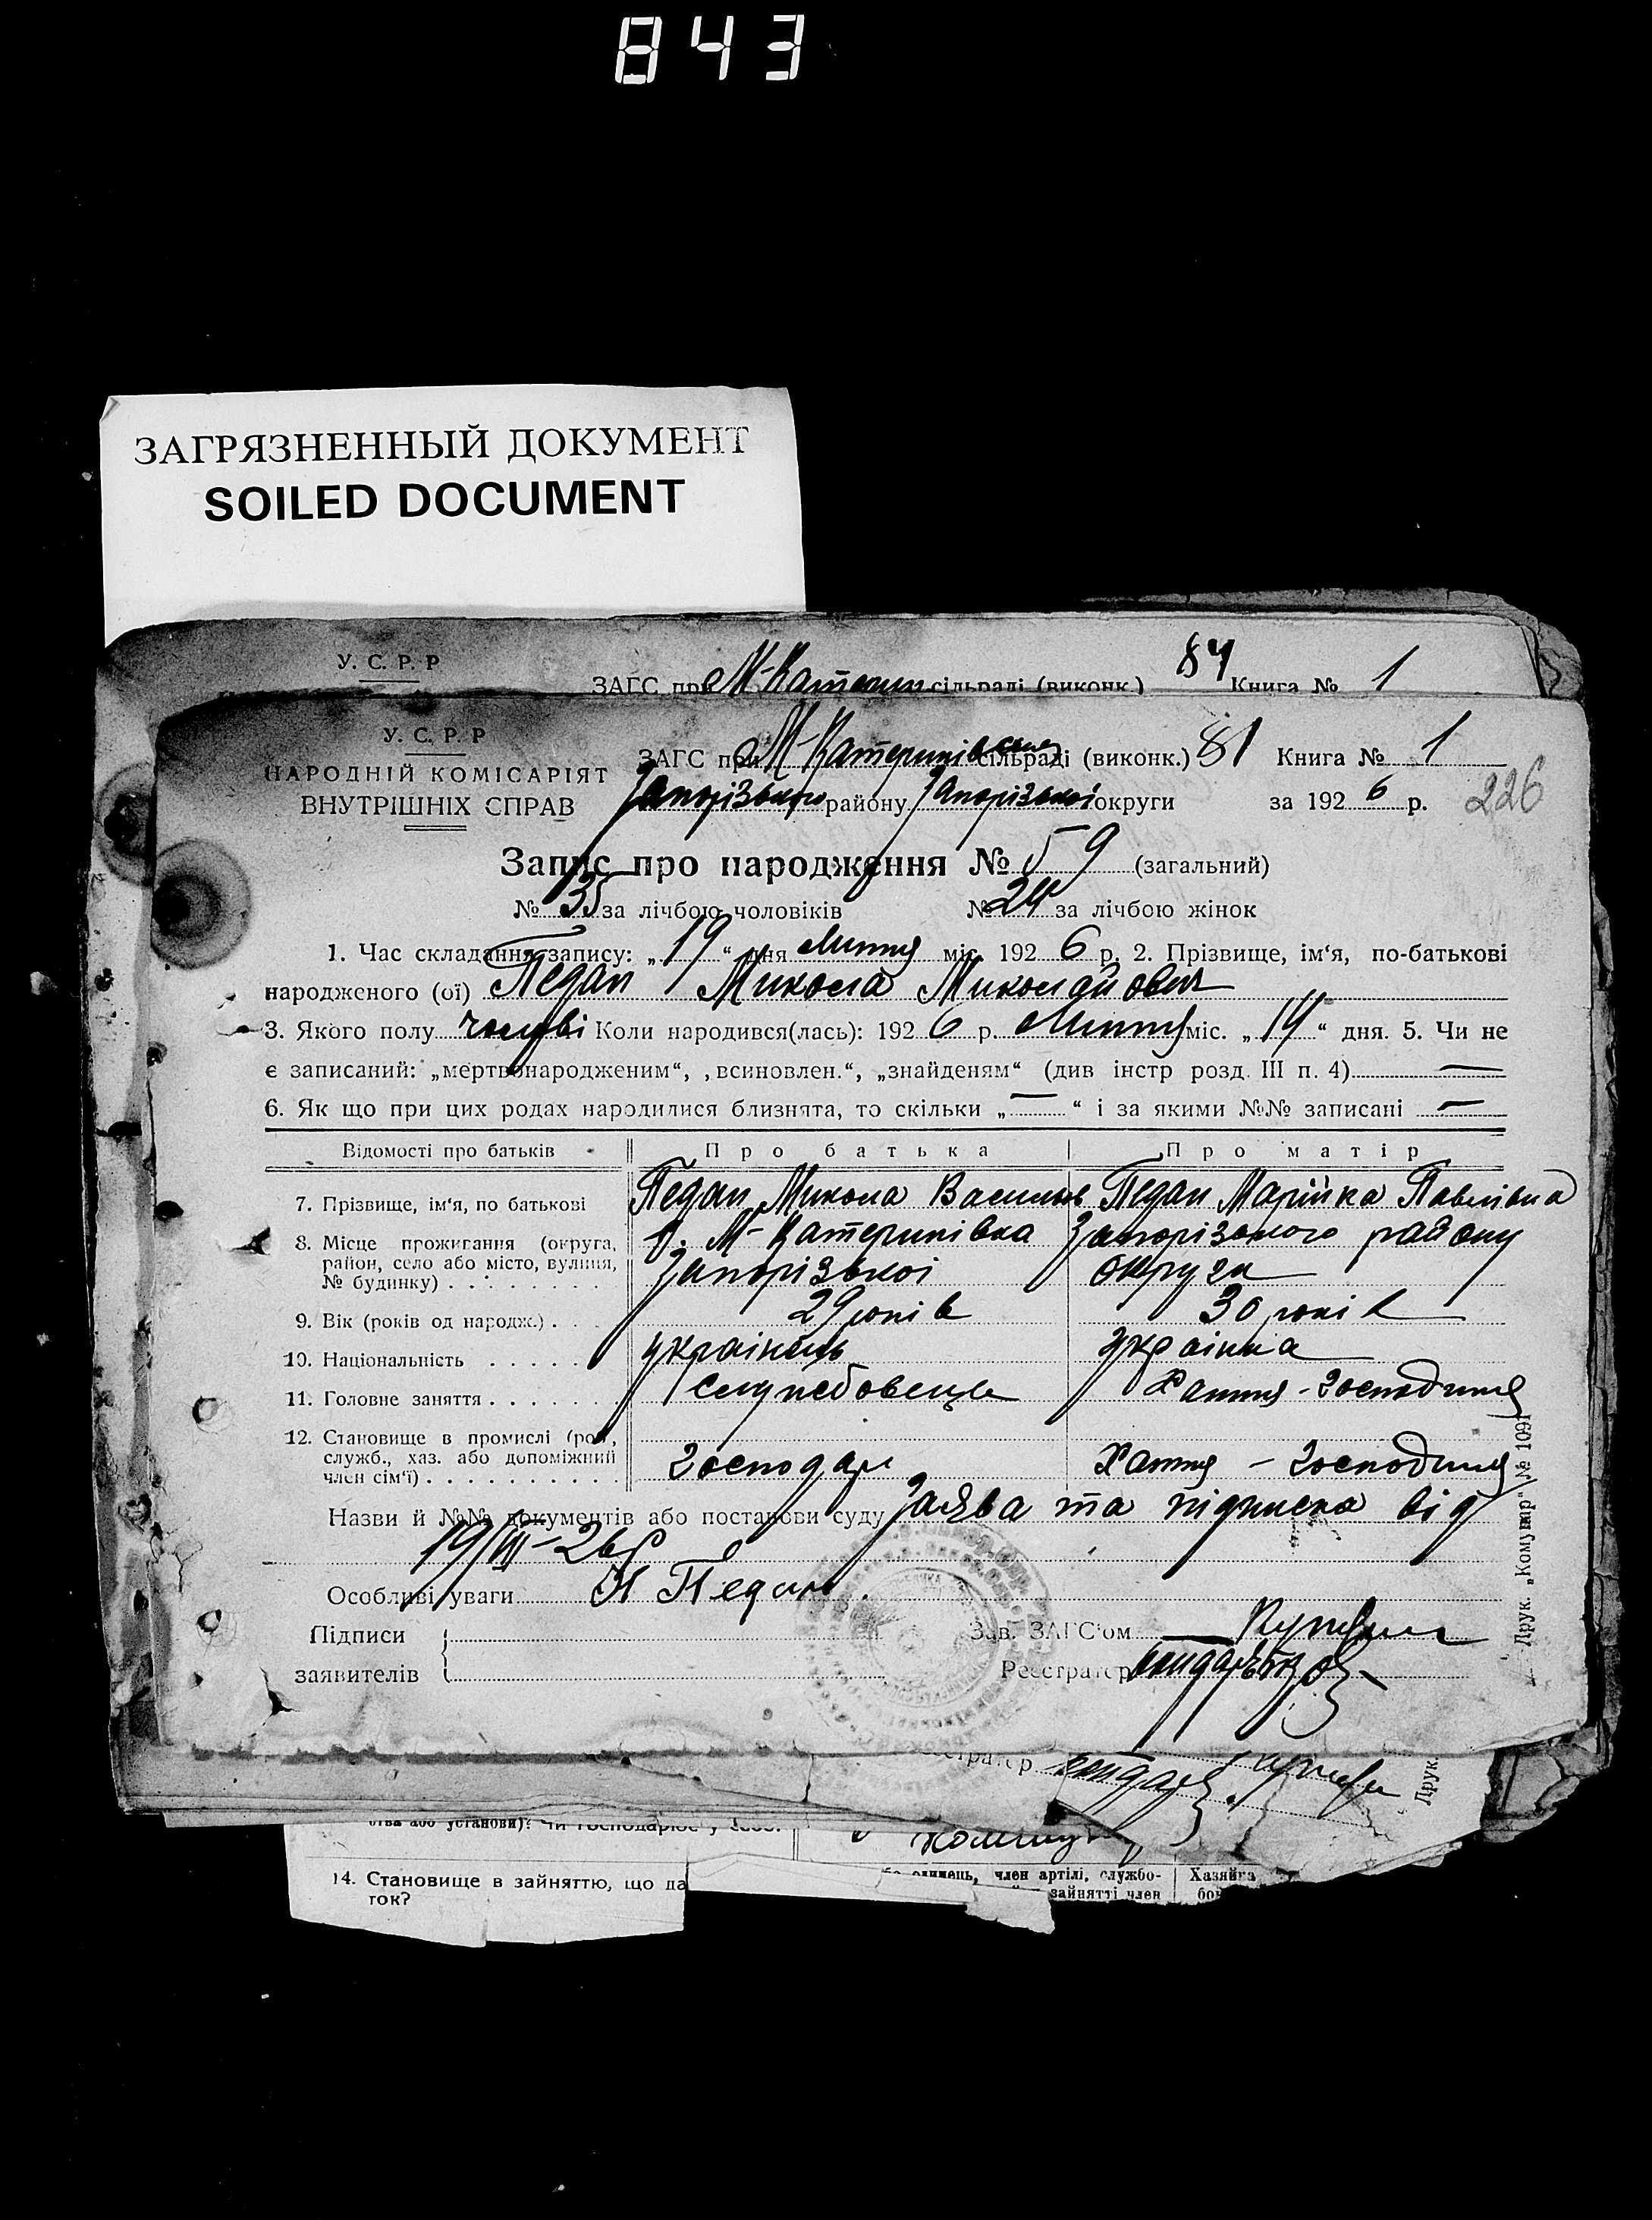 843
ЗАГРЯЗНЕННЫЙ ДОКУМЕНТ
SOILED DOCUMENT
У. С. Р. Р
ЗАГС при М-Катерин сільраді (виконк.) 84 Книга № 1
У. С. Р. Р
НАРОДНІЙ КОМІСАРІЯТ
ВНУТРІШНІХ СПРАВ
ЗАГС при М-Катеринівськ сільраді (виконк.) 81 Книга № 1
Запорізького району Запорізької округи за 1926 р. 226
Запис про народження № 59 (загальний)
№ 35 за лічбою чоловіків № 24 за лічбою жінок
1. Час складання запису: „19“ дня Липня міс. 1926 р. 2. Прізвище, ім‘я, по-батькові
народженого (ої) Педан Микола Миколайович
3. Якого полу чолові Коли народився(лась): 1926 р. Липня міс. „14“ дня. 5. Чи не
є записаний: „мертвонародженим“, „всиновлен.“, „знайденям“ (див інстр розд. III п. 4) —
6. Як що при цих родах народилися близнята, то скільки „—“ і за якими №№ записані —
Відомості про батьків Про батька Про матір
7. Прізвище, ім‘я, по батькові Педан Микола Васильов Педан Марійка Павлівна
8. Місце проживання (округа, район, село або місто, вулиця, № будинку) . . . . . . . . М-Катеринівка Запорізького району
Запорізької округи
9. Вік (років од народж.) . . . 29 років 30 років
10. Національність . . . . . українець українка
11. Головне заняття . . . . . . Службовець Хатня - господиня
12. Становище в промислі (роб., служб., хаз. або допоміжний член сім‘ї) . . . . . . . . . . господар Хатня - господиня
Назви й №№ документів або постанови суду Заява та підписка від
19/VII-26р
Особливі уваги Н Педан
Підписи
заявителів
Зав. ЗАГС‘ом
Реєстратор
Друк. „Комунар“ № 1091
Друк.
14. Становище в зайняттю, що да
ток?
одинець, член артілі, службо-
зайнятті член
Хазяйка